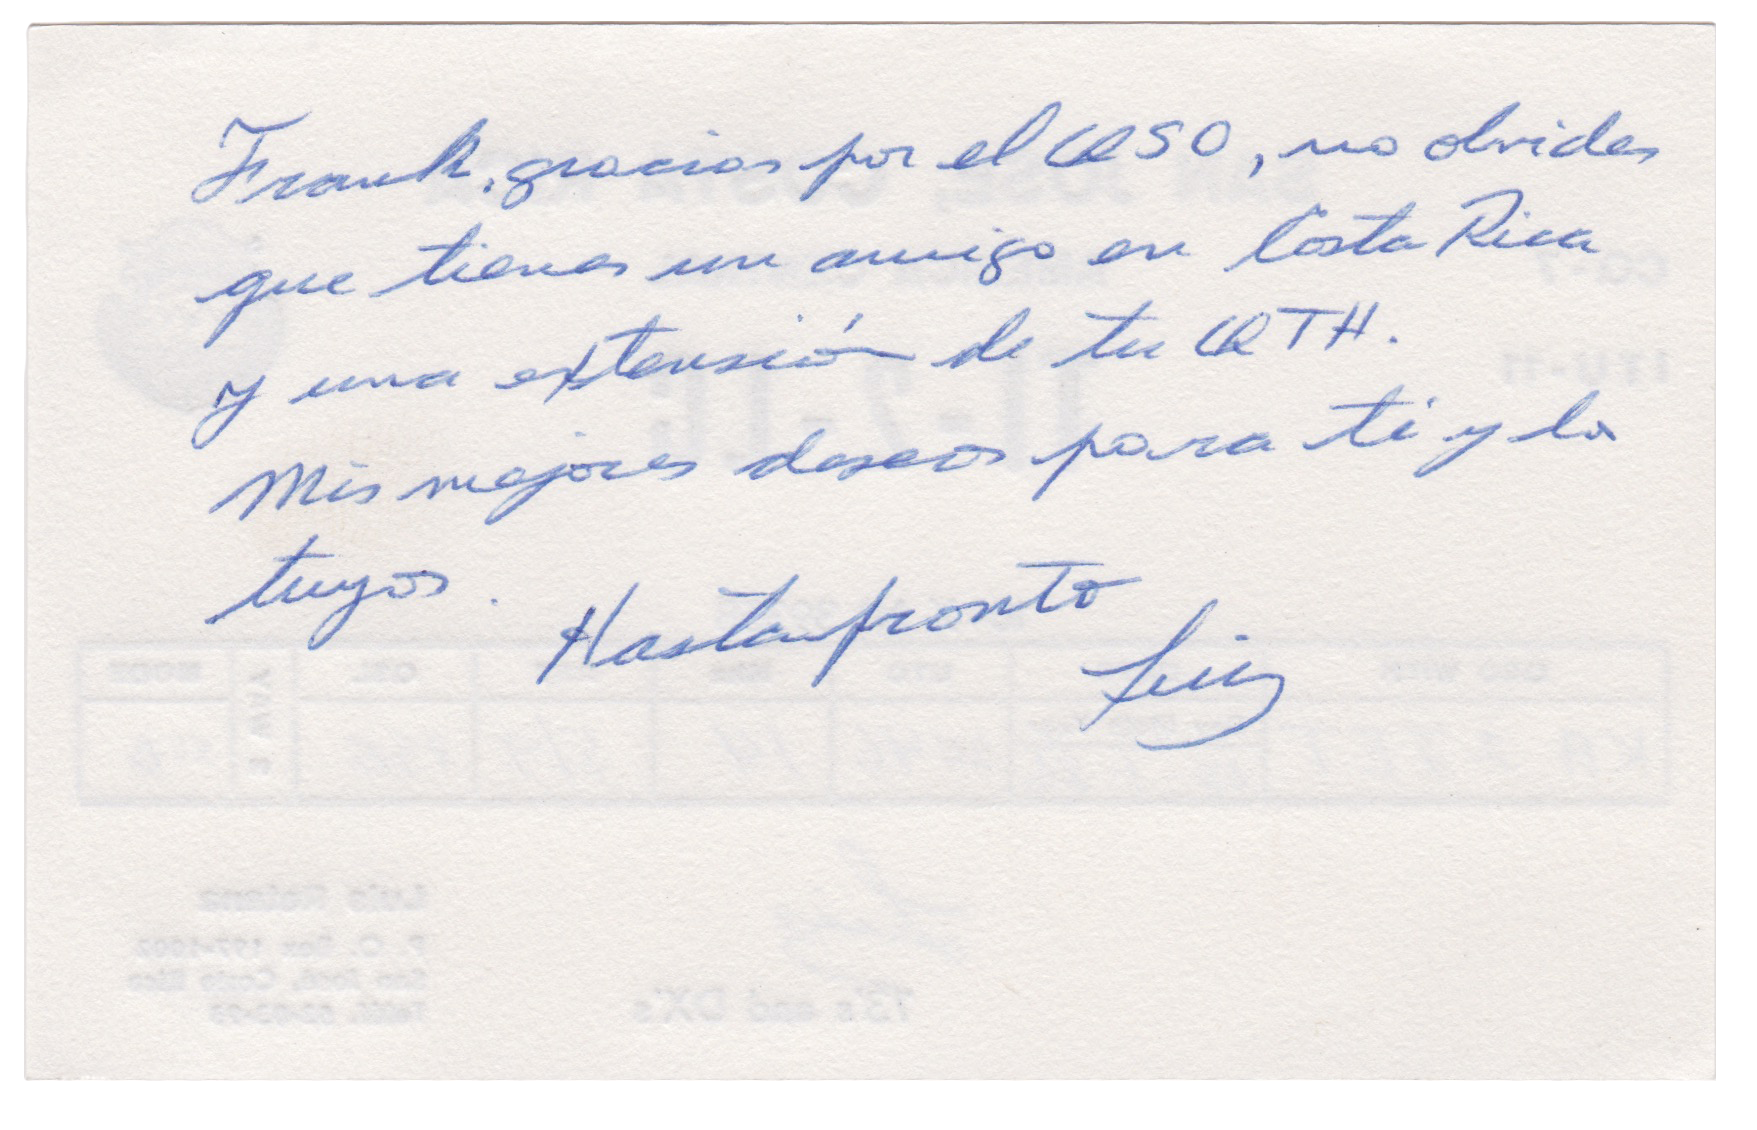 Frank, gracias por el QSO, no olvides
que tienes un amigo en Costa Rica
y una extensión de tu QTH.
Mis mejores deseos para ti y los
tuyos. Hasta pronto
Luis
Luis
73's and DX's